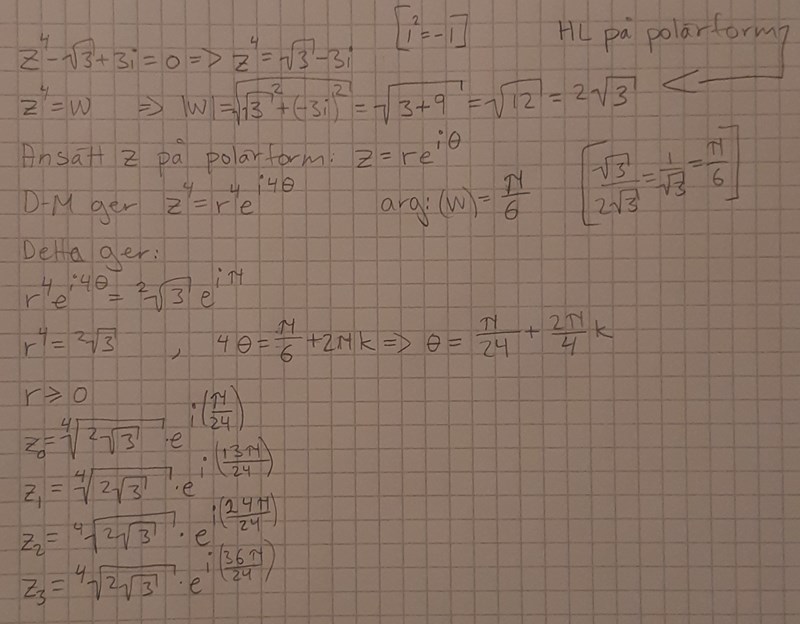 [i²=-1]
HL på polärform
z⁴-√3+3i=0 => z⁴=√3-3i
z⁴=w => |w|=√(√3²+(-3i)²)=√(3+9)=√12=2√3
Ansätt z på polärform: z=re^(iθ)
D-M ger z⁴=r⁴e^(i4θ) arg:(w)=π/6 [√3/2√3=1/√3=π/6]
Detta ger:
r⁴e^(i4θ)=2√3 e^(iπ)
r⁴=2√3 , 4θ=π/6+2πk=>θ=π/24+2π/4 k
r≥0
z₀=⁴√(2√3)·e^(i(π/24))
z₁=⁴√(2√3)·e^(i(13π/24))
z₂=⁴√(2√3)·e^(i(24π/24))
z₃=⁴√(2√3)·e^(i(36π/24))